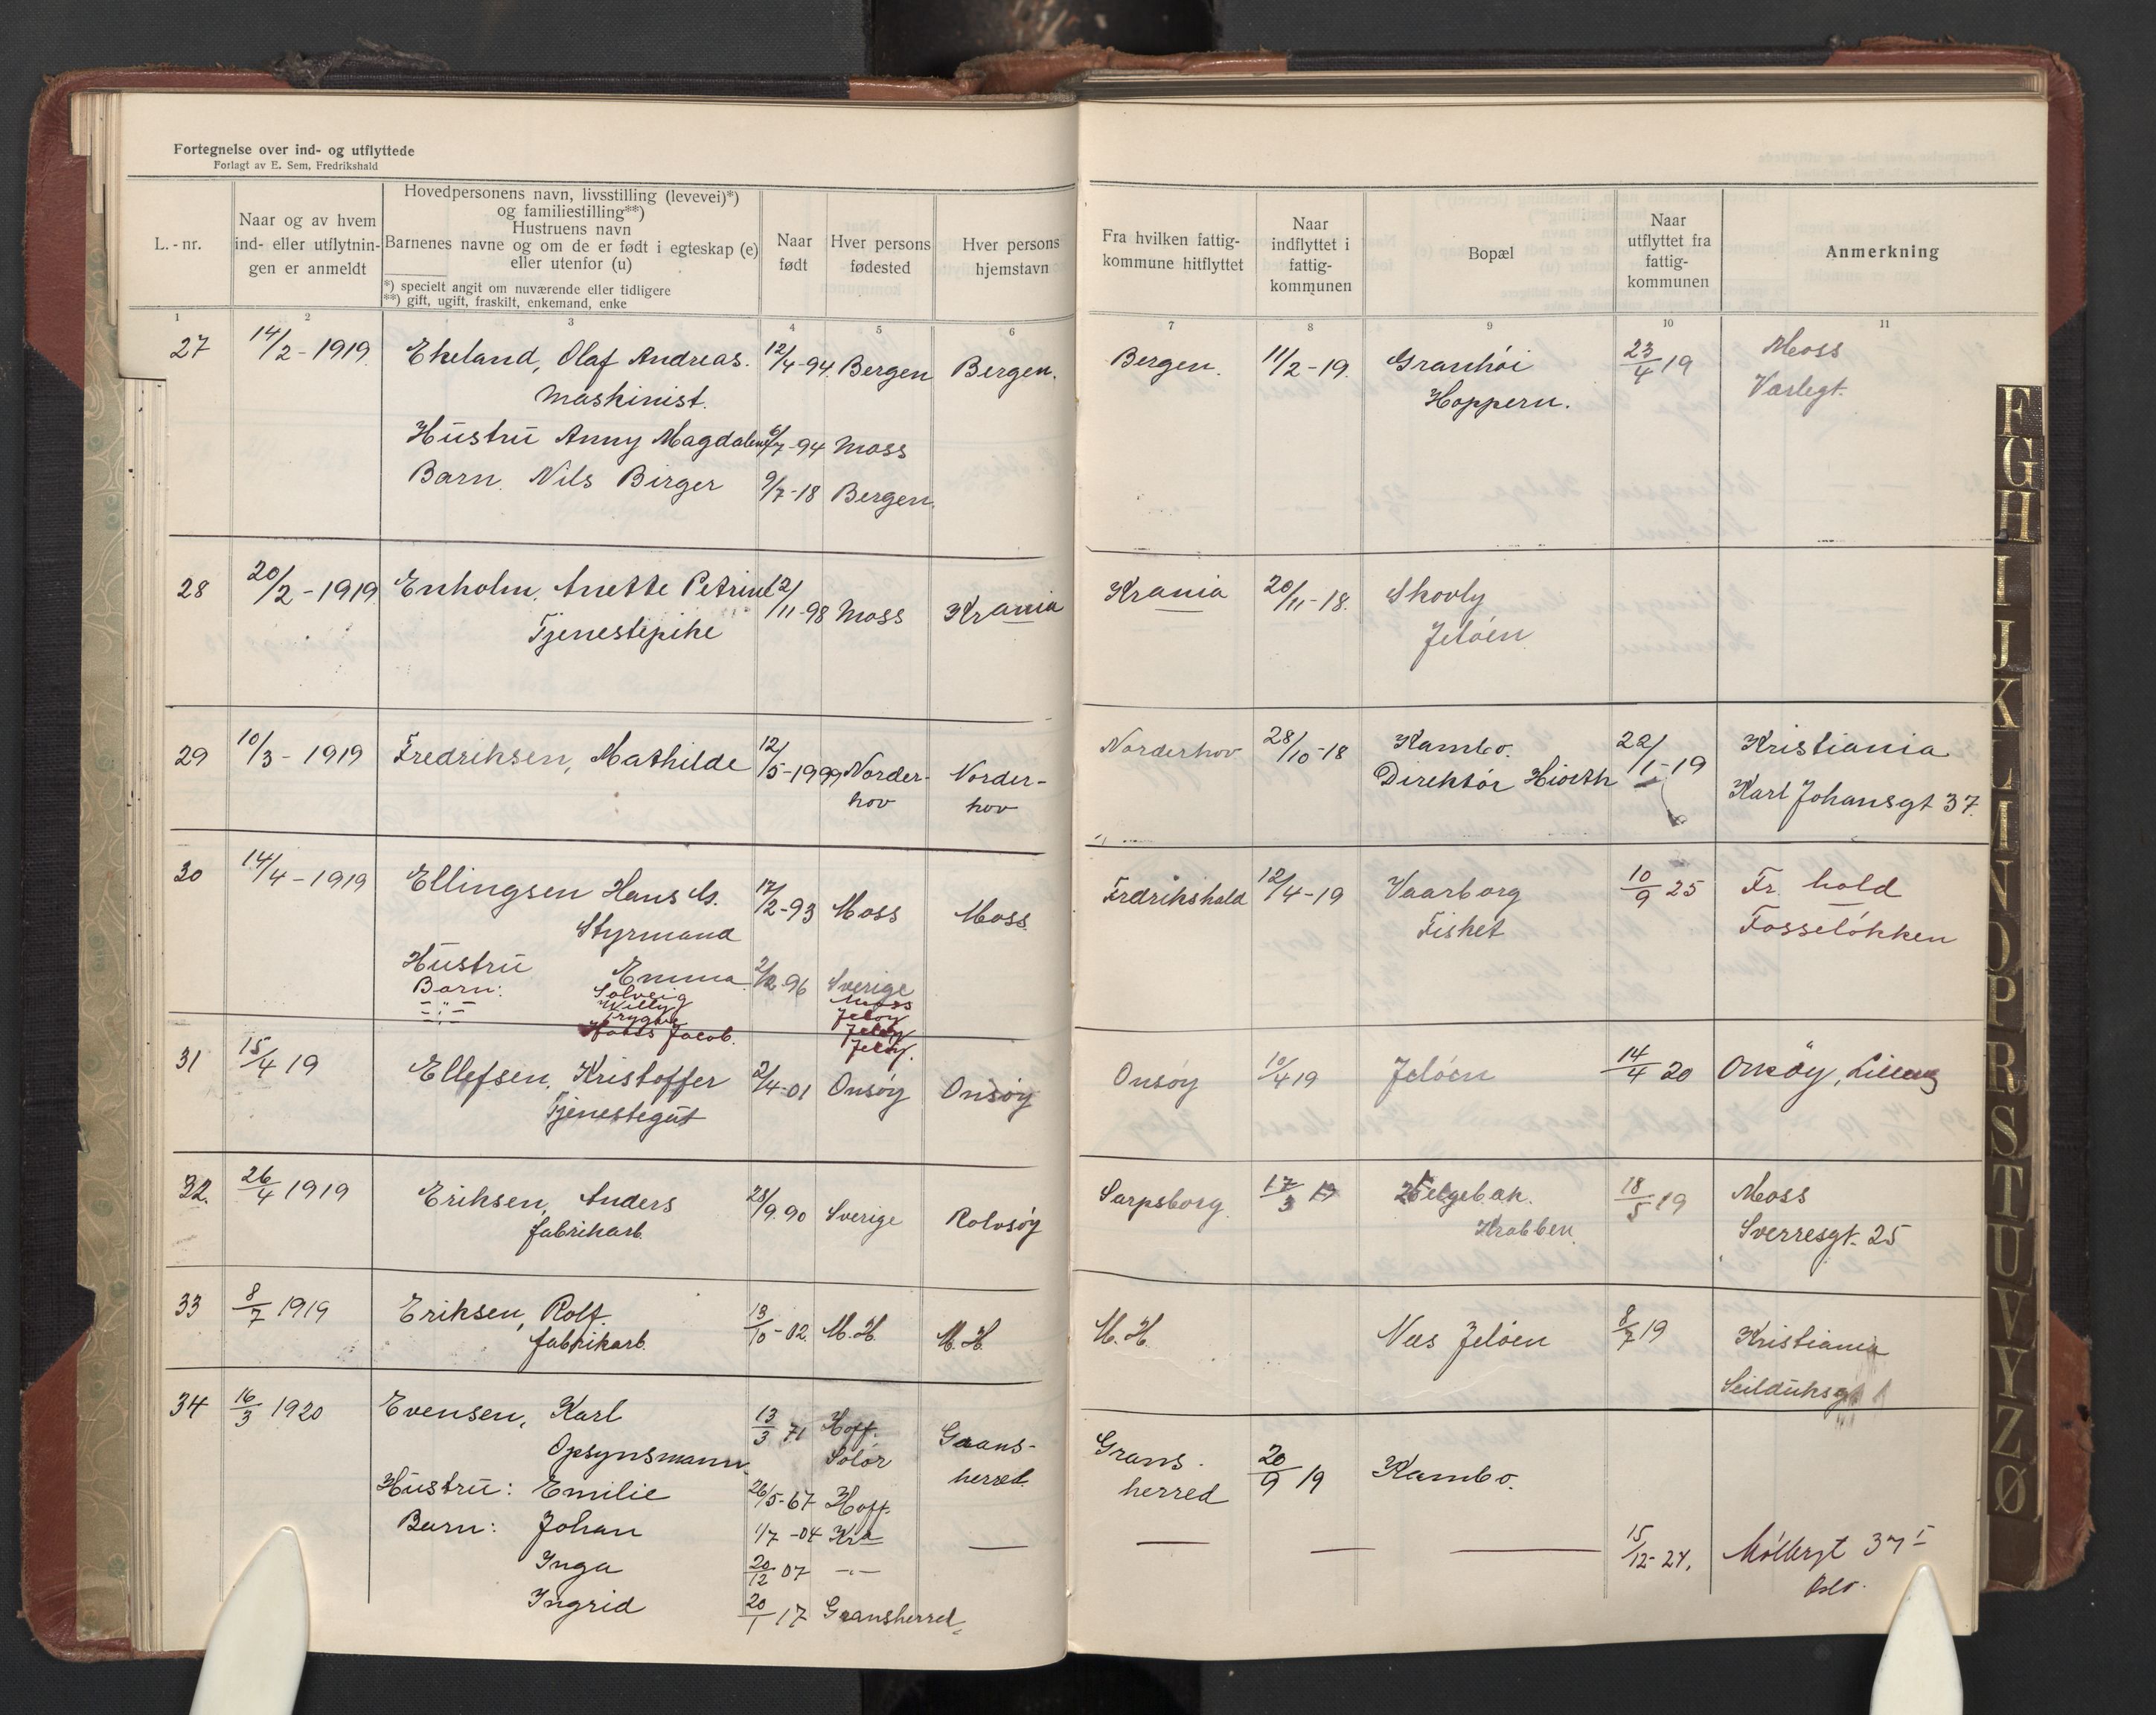 Fortegnelse over ind- og utflyttede
Forlagt av E. Sem, Fredrikshald
L.-nr.
Naar og av hvem
ind- eller utflytnin-
gen er anmeldt
Hovedpersonens navn, livsstilling (levevei)*)
og familiestilling**)
Hustruens navn
Barnenes navne og om de er født i egteskap (e)
eller utenfor (u)
*) specielt angit om nuværende eller tidligere
**) gift, ugift, fraskilt, enkemand, enke
Naar
født
Hver persons
fødested
Hver persons
hjemstavn
Fra hvilken fattig-
kommune hitflyttet
Naar
indflyttet i
fattig-
kommunen
Bopæl
Naar
utflyttet fra
fattig-
kommunen
Anmerkning
1 2 3 4 5 6 7 8 9 10 11
27 14/2-1919. Ekeland, Olaf Andreas. 12/4-94. Bergen Bergen. Bergen. 11/2-19. Granhöi 23/4 19 Moss
Maskinist. Hoppern. Varlegt.
Hustru Anny Magdalene 6/7-94 Moss
Barn. Nils Birger 9/7-18 Bergen.
28 20/2-1919 Enholm, Anette Petrine 12/11-98 Moss Krania Krania 20/11-18. Skovly
Tjenestepike Jelöen
29 10/3-1919 Fredriksen, Mathilde 12/5-1999 Norder- Norder- Norderhov 28/10-18 Kambo. 22/1-19 Kristiania
hov hov Direktör Hiorth Karl Johansgt 37.
30 14/4-1919 Ellingsen Hans M. 17/2-93 Moss Moss. Fredrikshald 12/4-19 Vaarborg 10/9 25 Fr. hald
Styrmand Fisket Fosselökken
Hustru Emma 2/12-96 Sverige
Barn: Solveig Moss
-"- Willy Jelöy
-"- Trygve Jelöy
Hans Jacob. Jelöy.
31 15/4 19 Ellefsen, Kristoffer 2/4-01 Onsöy Onsöy Onsöy 10/4 19 Jelöen 14/4 20 Onsöy,
Tjenestegut
32. 26/4 1919 Eriksen, Anders 28/9.90 Sverige Rolvsöy Sarpsborg. 17/3 19 Helgebak. 18/5 19 Moss
fabrikarb. Krabben. Sverresgt. 25
33 8/7 1919 Eriksen, Rolf. 13/10-02. M.H. M.H. M.H. Nes Jelöen 8/7 19 Kristiania
fabrikarb. Seilduksg
34 16/3 1920 Evensen, Karl 13/3 71 Hoff. Grans- Grans- 20/9 19 Kambo.
Opsynsmann. Solör herred. herred
Hustru: Emilie 26/5-67 Hoff.
Barn: Johan 1/7-04 Kra — — — — 15/12-24. Möllergt 37 I
Inga 20/12 07 -"- Oslo.
Ingrid 20/1 17 Gransherred.
F
G
H
I
J
K
L
M
N
O
P
R
S
T
U
V
Y
Z
Ø